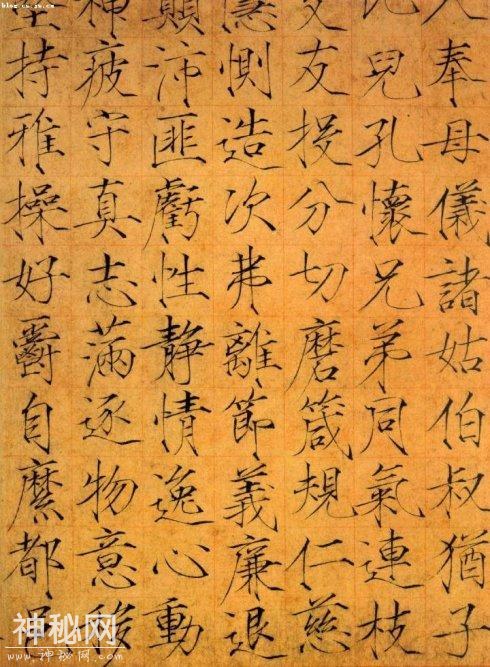 入奉母儀諸姑伯叔猶子
比兒孔懷兄弟同氣連枝
交友投分切磨箴規仁慈
隱惻造次弗離節義廉退
顛沛匪虧性靜情逸心動
神疲守真志滿逐物意
堅持雅操好爵自縻都
神秘网